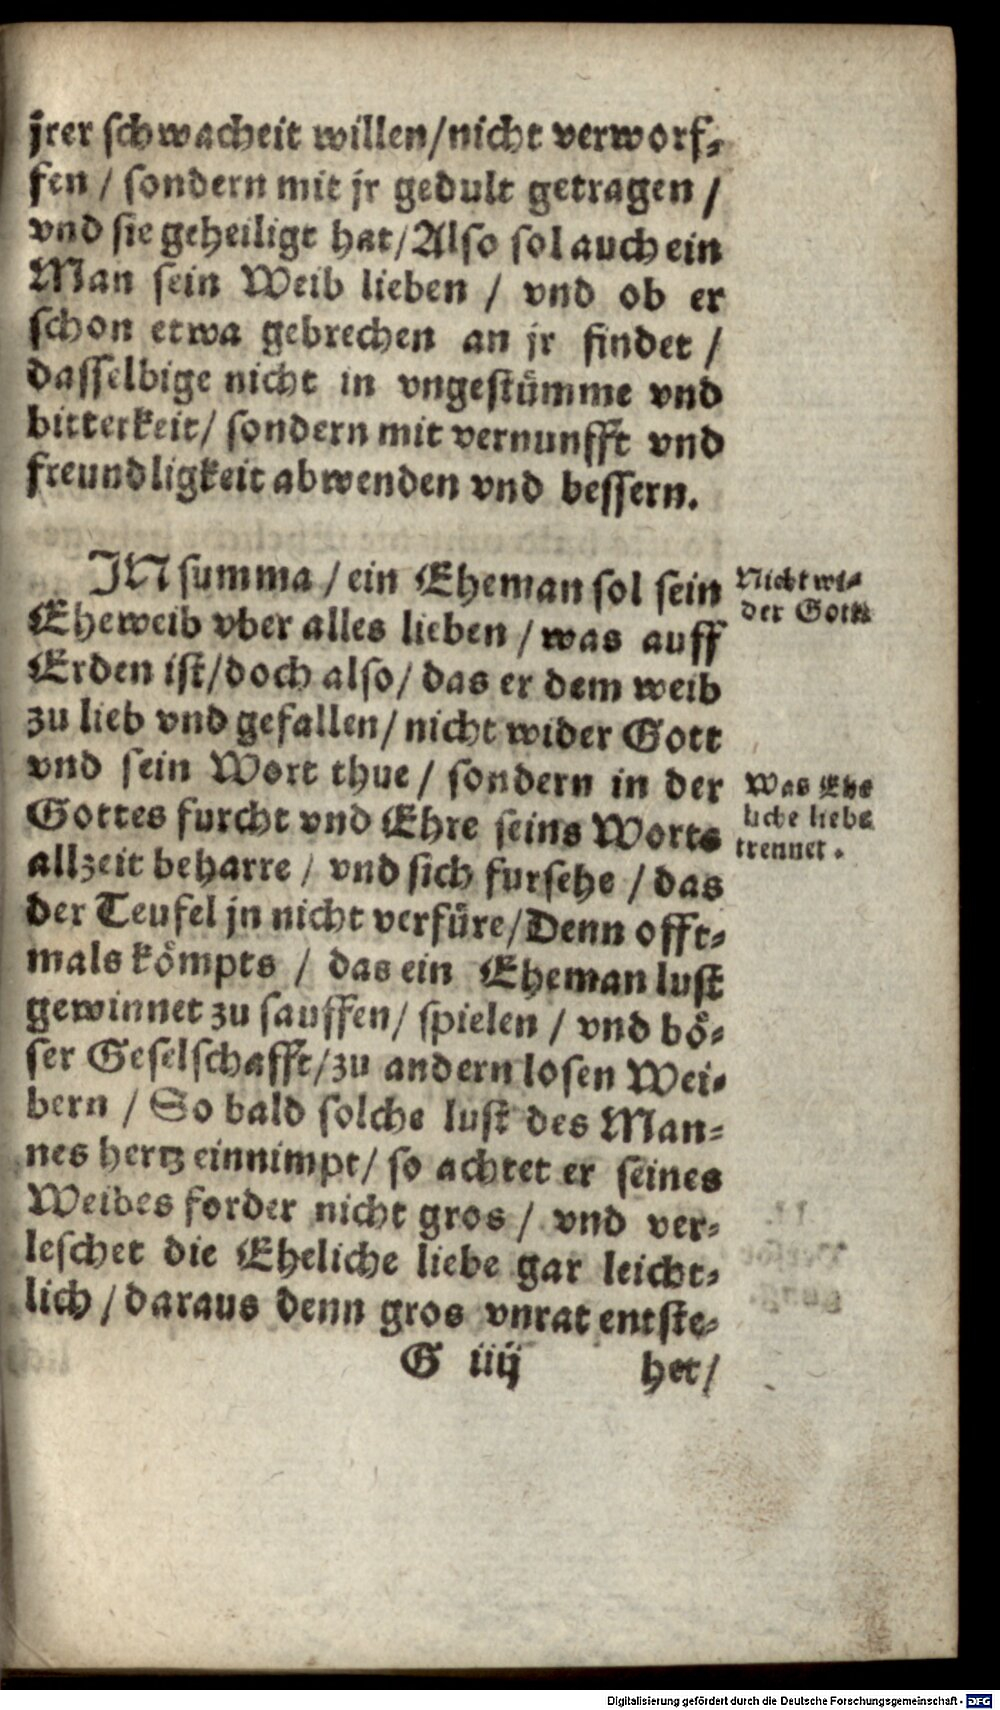 jrer schwacheit willen/nicht verworf-
fen / sondern mit jr gedult getragen /
vnd sie geheiligt hat/Also sol auch ein
Man sein Weib lieben / vnd ob er
schon etwa gebrechen an jr findet /
dasselbige nicht in vngestümme vnd
bitterkeit/ sondern mit vernunfft vnd
freundligkeit abwenden vnd bessern.
JN summa / ein Eheman sol sein
Eheweib vber alles lieben / was auff
Erden ist/doch also/ das er dem weib
zu lieb vnd gefallen/ nicht wider Gott
vnd sein Wort thue / sondern in der
Gottes furcht vnd Ehre seins Worts
allzeit beharre / vnd sich fursehe / das
der Teufel jn nicht verfüre/Denn offt-
mals kömpts / das ein Eheman lust
gewinnet zu sauffen/ spielen / vnd bö-
ser Geselschafft/zu andern losen Wei-
bern / So bald solche lust des Man-
nes hertz einnimpt/ so achtet er seines
Weibes forder nicht gros / vnd ver-
leschet die Eheliche liebe gar leicht-
lich / daraus denn gros vnrat entste-
G iiij het/
Nicht wi-
der Gott.
Was Ehe
liche liebe
trennet.
Digitalisierung gefördert durch die Deutsche Forschungsgemeinschaft - DFG